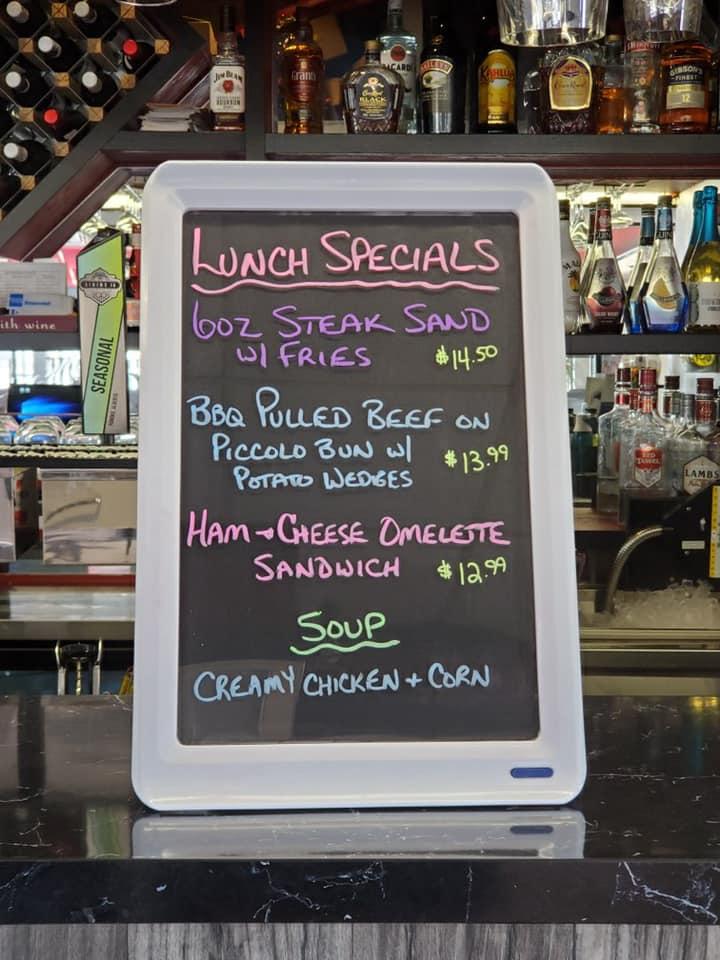 JIM BEAM
Grant's
BLACK
BACARDI
BAILEYS
KAHLUA
GIBSON'S
FINEST
12
ith wine
SEASONAL
LUNCH SPECIALS
6OZ STEAK SAND
W/ FRIES $14.50
BBQ PULLED BEEF ON
PICCOLO BUN W/ $13.99
POTATO WEDGES
HAM + CHEESE OMELETTE
SANDWICH $12.99
SOUP
CREAMY CHICKEN + CORN
RED
TASSEL
LAMB'S